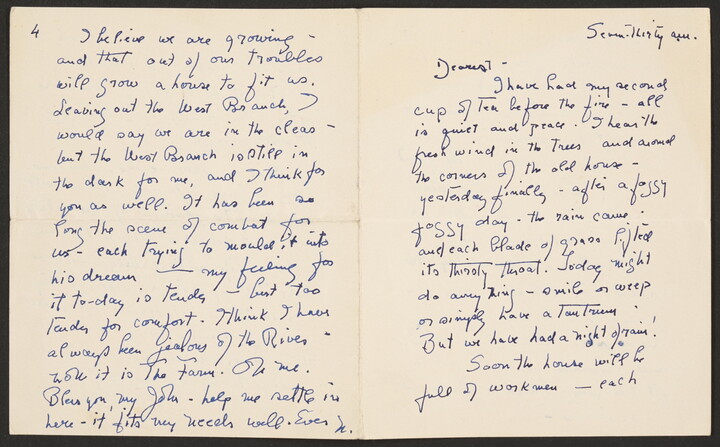 Seven-Thirty a.m.
Dearest -
I have had my second
cup of Tea before the fire - all
is quiet and peace. I hear the
fresh wind in the trees and around
the corners of the old house -
yesterday finally - after a foggy
foggy day - the rain came.
and each blade of grass lifted
its thirsty throat. Today might
do anything - smile or weep
or simply have a tantrum!
But we have had a night of rain!
Soon the house will be
full of workmen - each
4
I believe we are growing -
and that out of our troubles
will grow a house to fit us.
Leaving out the West Branch, I
would say we are in the clear -
but the West Branch is still in
the dark for me, and I think for
you as well. It has been so
long the scene of combat for
us - each trying to mould it into
his dream — my feeling for
it to-day is tender - but too
tender for comfort. I think I have
always been jealous of the River -
now it is the Farm. Oh me.
Bless you, my John - help me settle in
here - it fits my needs well. Ever